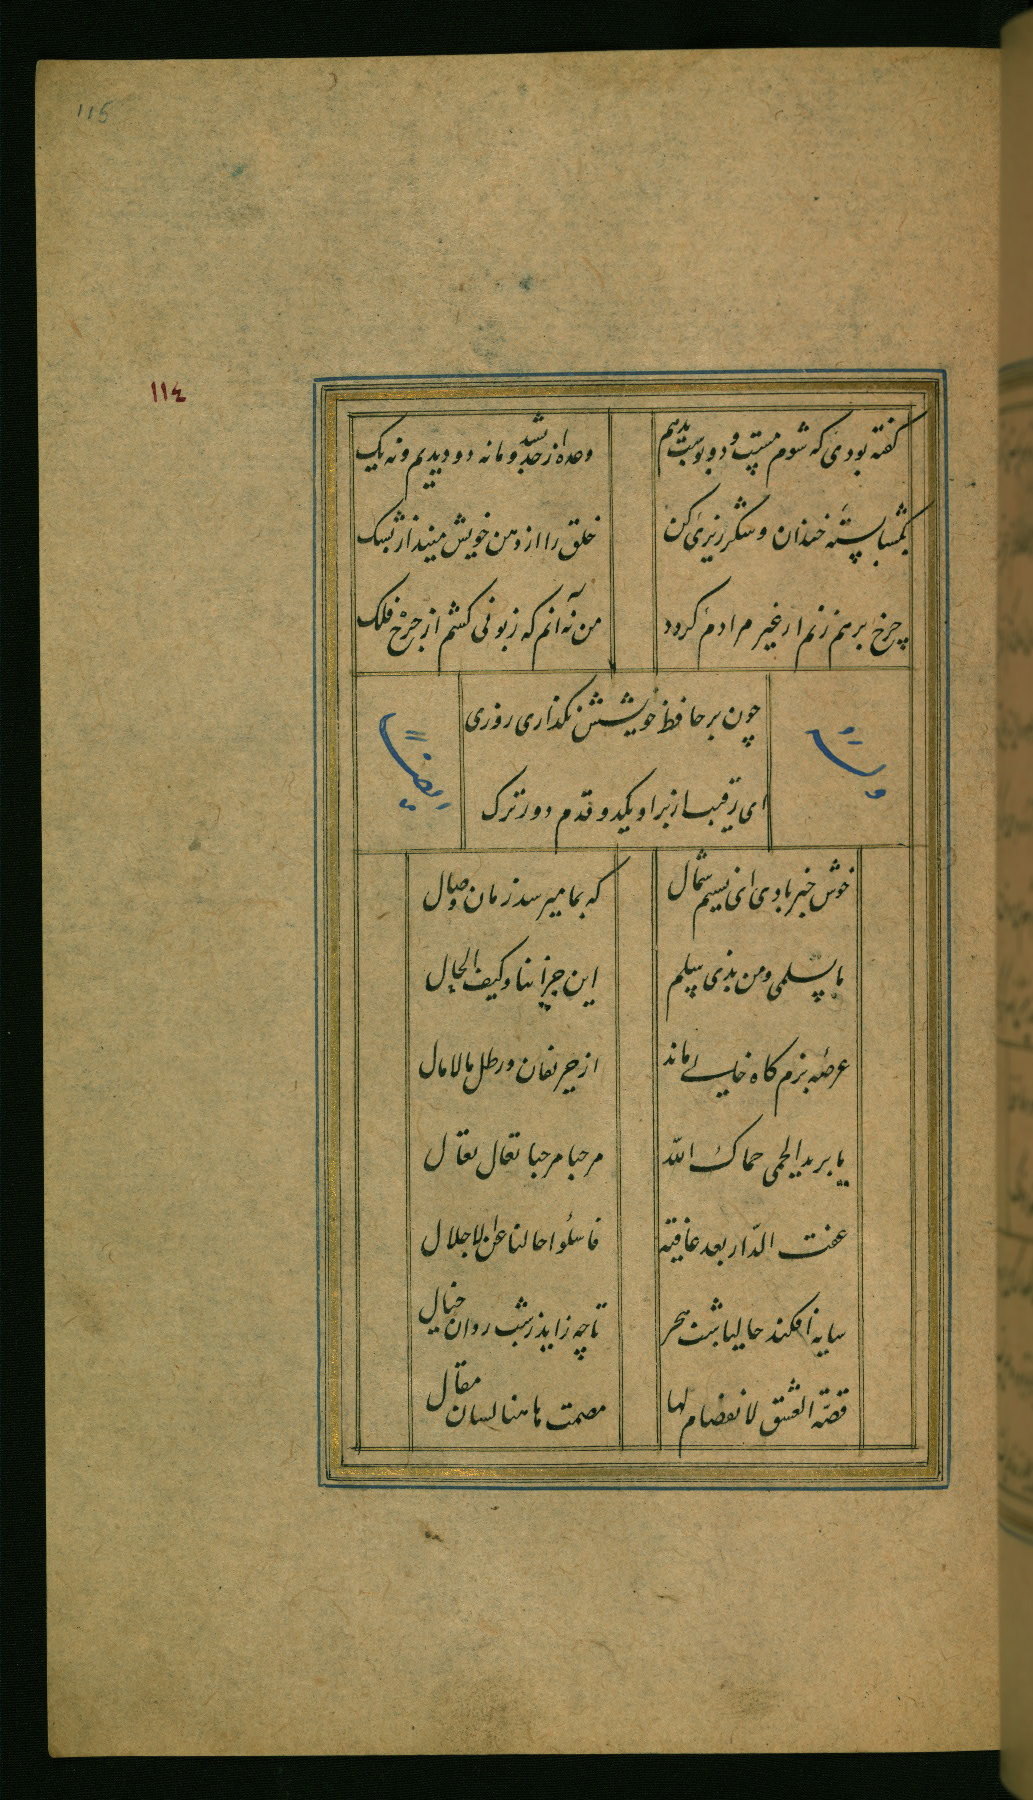 115
١١٤
گفته بودی که شوم مست و دو بوست بدهم
وعده از حد بشد و ما نه دو دیدیم و نه یک
بگشا پسته خندان و شکر ریزی کن
خلق را از دهن خویش مینداز بشک
چرخ بر هم زنم ار غیر مرادم گردد
من نه آنم که زبونی کشم از چرخ فلک
چون بر حافظ خویشتن نگذاری روزی
ای رقیب از بر او یکدو قدم دورترک
وله ایضا
خوش خبر بادی ای نسیم شمال
که بما میرسد زمان وصال
ما بسلمی و من بذی سلم
این جیراننا و کیف الحال
عرصه بزمگاه خالی ماند
از حریفان و رطل مالامال
یا برید الحمی حماک الله
مرحبا مرحبا تعال تعال
عفت الدار بعد عافیة
فاسئلوا حالنا عن الاجلال
سایه افکند حالیا شب هجر
تا چه زاید ز شب روان خیال
قصة العشق لا انفصام لها
فصمت هاهنا لسان مقال